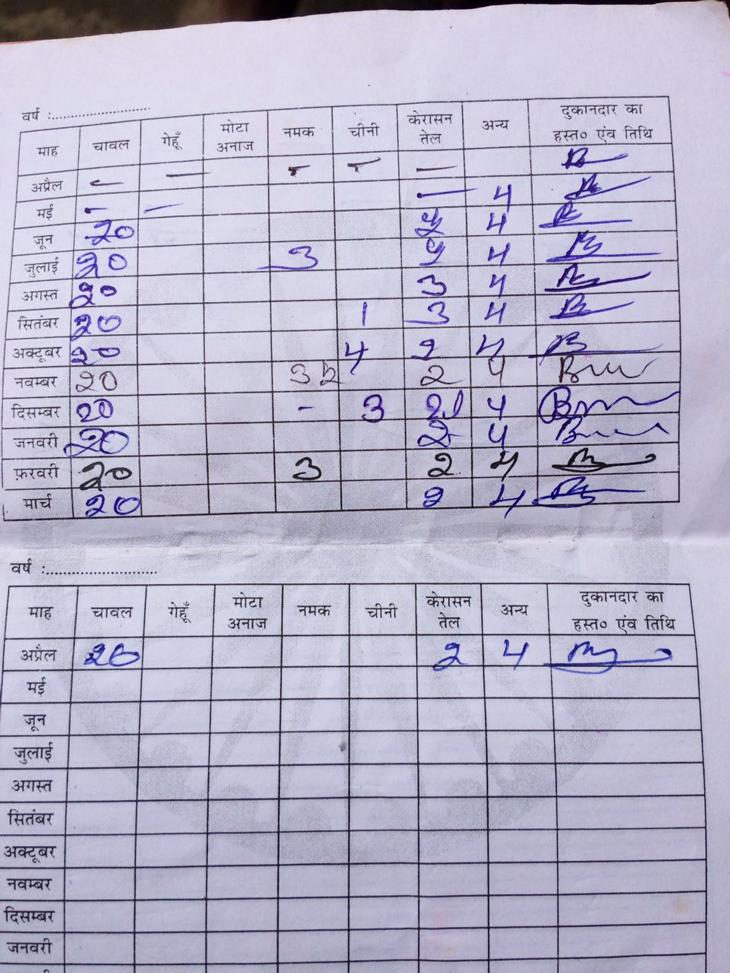 वर्ष :..........................
माह चावल गेहूँ मोटा अनाज नमक चीनी केरासन तेल अन्य दुकानदार का हस्त० एंव तिथि
अप्रैल – – – – –
मई – – – 4
जून 20 4
जुलाई 20 3 4
अगस्त 20 3 4
सितंबर 20 1 3 4
अक्टूबर 20 4 2 4
नवम्बर 20 2 4
दिसम्बर 20 - 3 4
जनवरी 20 2 4
फ़रवरी 20 3 2 4
मार्च 20 2 4
वर्ष :..........................
माह चावल गेहूँ मोटा अनाज नमक चीनी केरासन तेल अन्य दुकानदार का हस्त० एंव तिथि
अप्रैल 20 2 4
मई
जून
जुलाई
अगस्त
सितंबर
अक्टूबर
नवम्बर
दिसम्बर
जनवरी